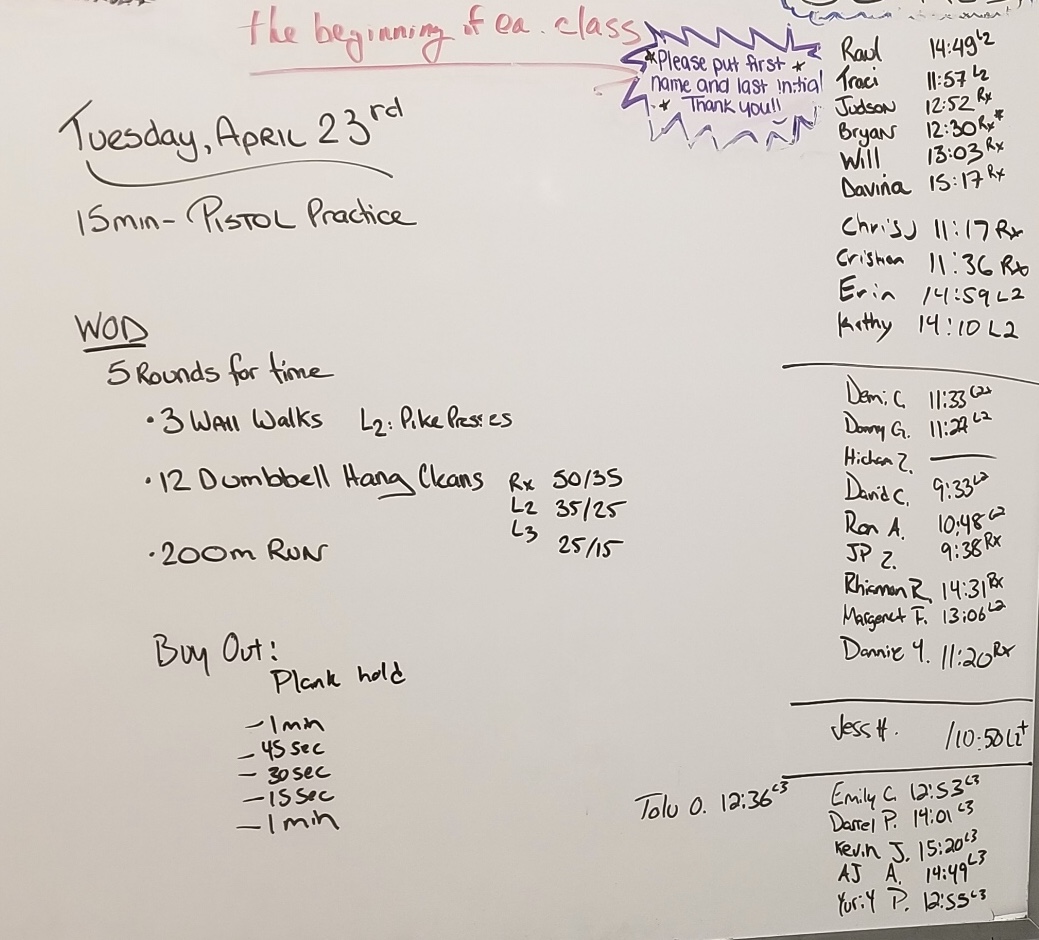 the beginning of ea. class
*Please put first *
name and last initial
* Thank you!!
Tuesday, April 23rd
15min- Pistol Practice
WOD
5 Rounds for time
• 3 Wall Walks L2: Pike Presses
• 12 Dumbbell Hang Cleans Rx 50/35
L2 35/25
L3 25/15
• 200m Run
Buy Out:
Plank hold
- 1 min
- 45 sec
- 30 sec
- 15 sec
- 1 min
Raul 14:49 L2
Traci 11:57 L2
Judson 12:52 Rx
Bryan 12:30 Rx*
Will 13:03 Rx
Davina 15:17 Rx
Chris J 11:17 Rx
11:36 Rx
Erin 14:59 L2
Kathy 14:10 L2
Demi C. 11:33 L2+
Danny G. L2
Hichem Z. —
David C. 9:33 L2
Ron A. 10:48 L2
JP Z. 9:38 Rx
Rhiannon R. 14:31 Rx
Margaret F. 13:06 L2
Dannie Y. 11:20 Rx
Jess H. /10:50 L2+
Tolu O. 12:36 L3
Emily C. 12:53 L3
Darrel P. 14:01 L3
Kevin J. 15:20 L3
AJ A. 14:49 L3
Yuriy P. 12:55 L3